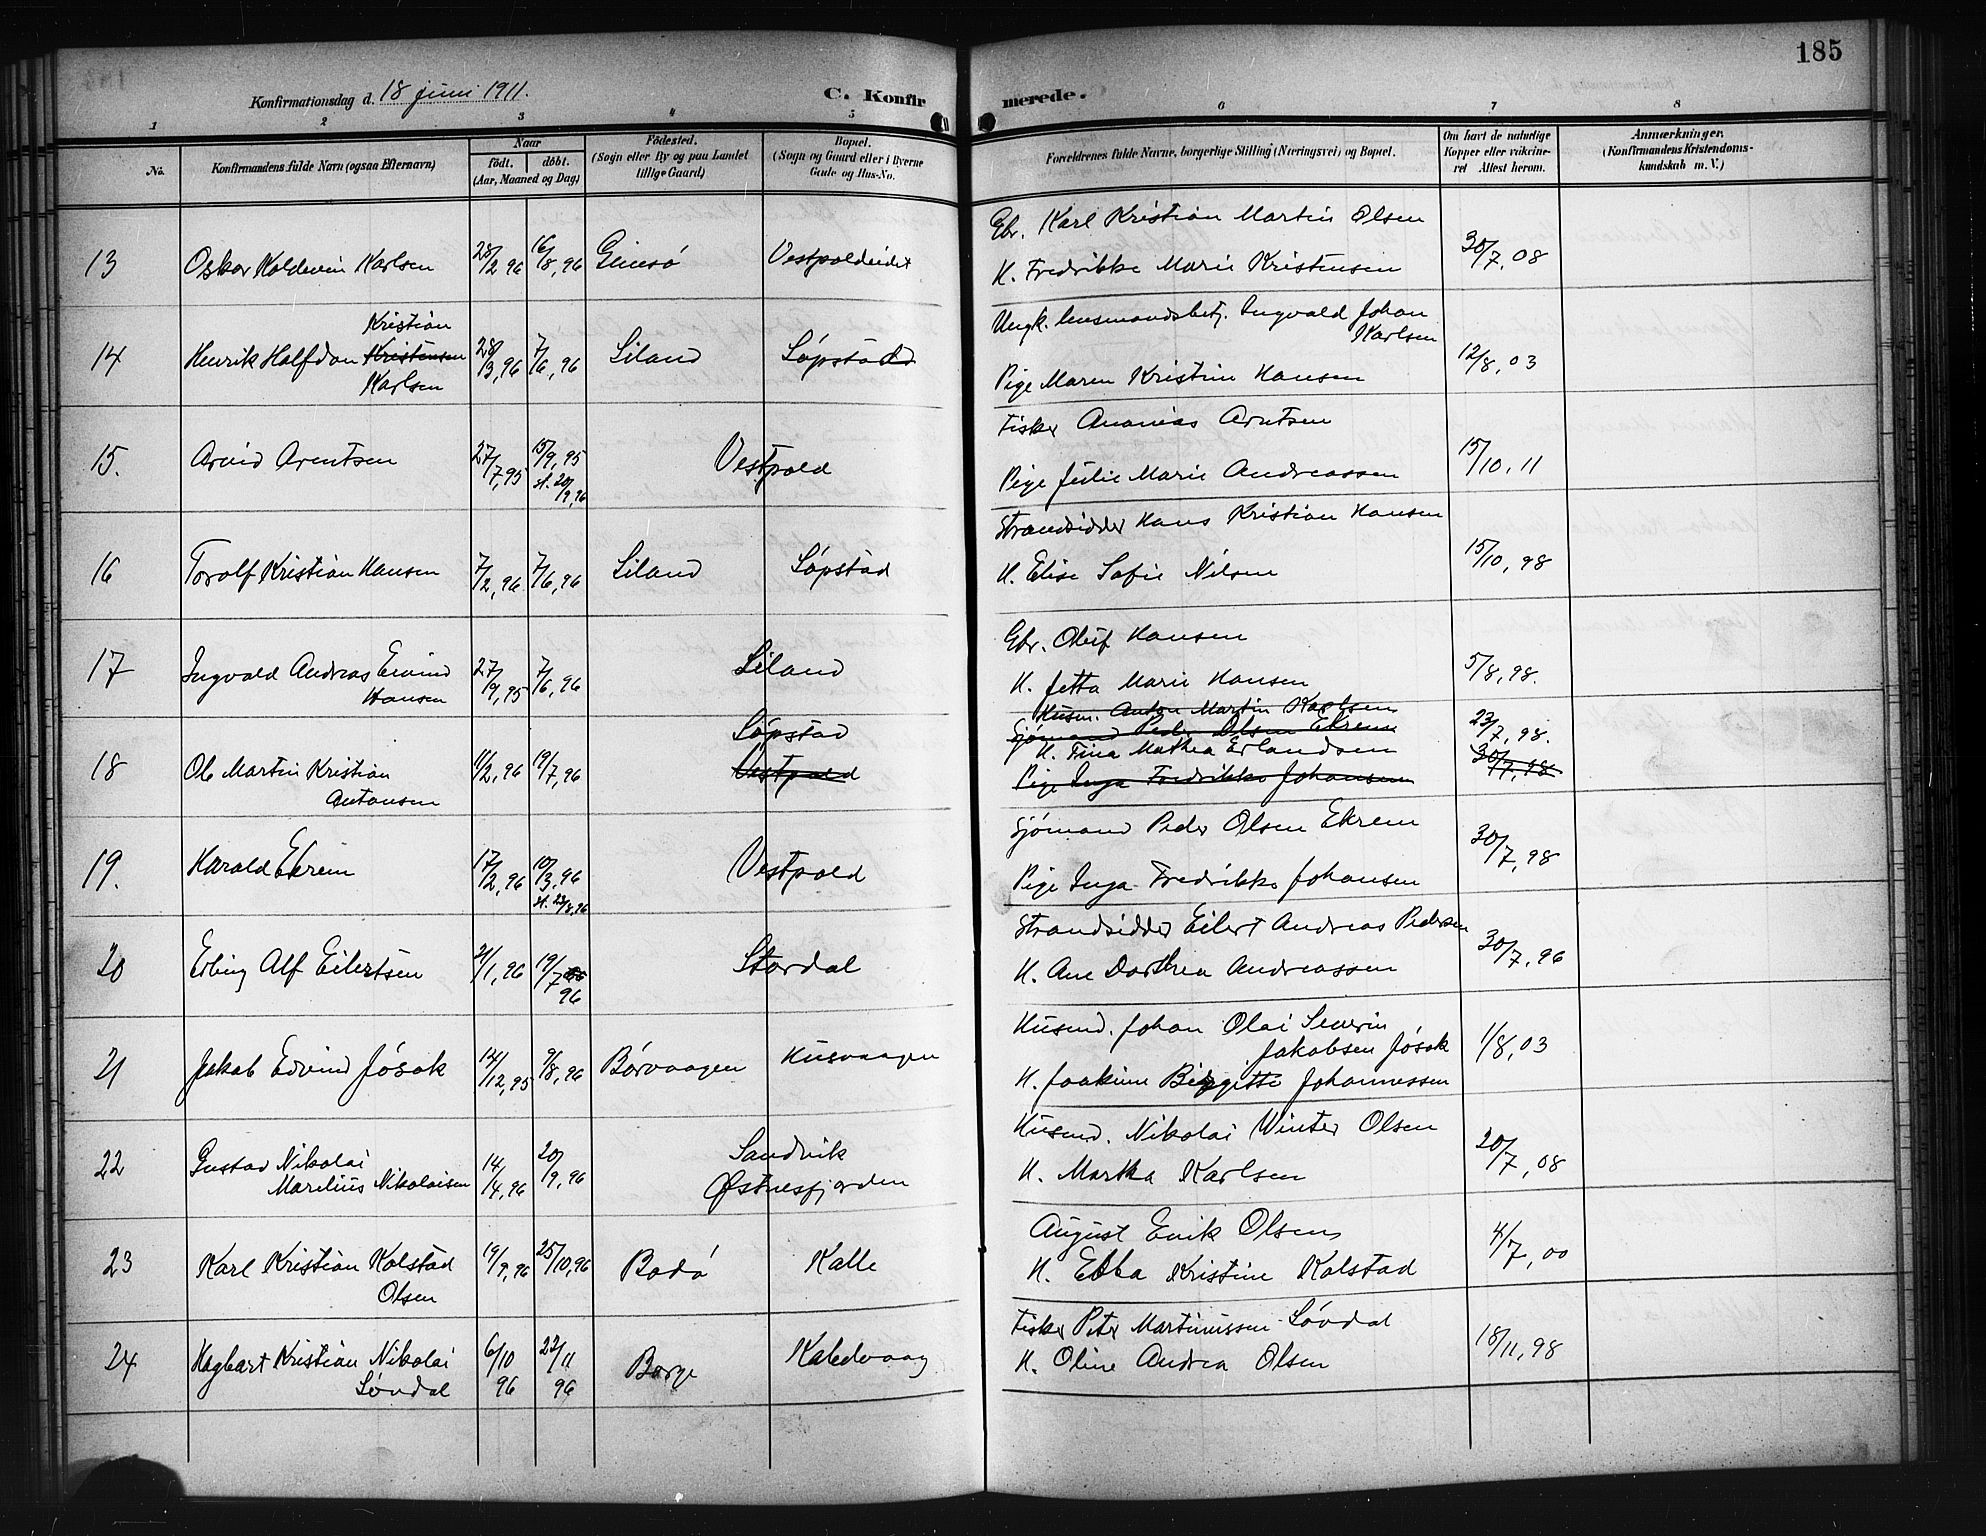 185
Konfirmationsdag d. 18 juni 1911.
C. Konfirmerede.
1 2 3 4 5 6 7 8
No.
Konfirmandens fulde Navn (ogsaa Efternavn)
Naar
födt. döbt.
(Aar, Maaned og Dag)
Födested.
(Sogn eller By og paa Landet
tillige Gaard)
Bopæl.
(Sogn og Gaard eller i Byerne
Gade og Hus-No.
Forældrenes fulde Navne, borgerlige Stilling (Næringsvei) og Bopæl.
Om havt de naturlige
Kopper eller vakcine-
ret Attest herom.
Anmærkninger.
(Konfirmandens Kristendoms-
kundskab m. V.)
13 Oskar Koldevin Karlsen 28/2, 96 16/8, 96 Gimsö Vestpoldeidet
Gbr. Karl Kristian Martin Olsen
H. Fredrikke Marie Kristensen 30/7, 08
14 Henrik Halfdan Kristian
Kristensen
Karlsen 28/3, 96 7/6, 96 Liland Löpstad
Ungk. lensmandsbetj. Ingvald Johan
Karlsen
Pige Maren Kristine Hansen 12/8, 03
15. Arvid Arentsen 27/7, 95 15/9, 95
st. 20/9, 96 Vestpold
Fisker Ananias Arntsen
Pige Julie Marie Andreassen 15/10, 11
16 Torolf Kristian Hansen 7/2, 96 7/6, 96 Liland Löpstad
Strandsidder Hans Kristian Hansen
H. Elise Sofie Nilsen 15/10, 98
17 Ingvald Andreas Eivind
Hansen 27/9, 95 7/6, 96 Liland
Gbr. Oluf Hansen
H. Jetta Marie Hansen 5/8, 98.
18 Ole Martin Kristian
Antonsen 11/2, 96 19/7, 96 Löpstad
Vestpold
Husm. Anton Martin Karlsen
Sjömand Peder Olsen Ekrem
H. Tina Mathea Erlandsen 23/7, 98.
Pige Inga Fredrikke Johansen 30/7, 98
19. Harald Ekrem 17/2, 96 10/3, 96
st. 23/8, 96 Vestpold
Sjömand Peder Olsen Ekrem
Pige Inga Fredrikke Johansen 30/7, 98
20 Erling Alf Eilertsen 21/1, 96 19/7
96 Stordal
Strandsidder Eilert Andreas Pedersen
H. Ane Dorthea Andreassen 30/7, 96
21 Jakob Edvind Jösok 12/12, 95 9/8, 96 Börvaagen Husvaagen
Husmd. Johan Olai Severin
Jakobsen Jösok
H. Joakime Birgitte Johannessen 1/8, 03
22 Gustav Nikolai
Marelius Nikolaisen 14/4, 96 20/9, 96 Sandvik
Østnesfjorden
Husmd. Nikolai Winter Olsen
H. Martha Karlsen 20/7, 08
23 Karl Kristian Kolstad
Olsen 19/9, 96 25/10, 96 Bodö Kalle
August Enik Olsen
H. Ebba Kristine Kolstad 4/7, 00
24 Hagbart Kristian Nikolai
Lövdal 6/10
96 22/11
96 Borge Kabelvaag
Fisker Peter Martinussen Lövdal
H. Oline Andrea Olsen 18/11, 98